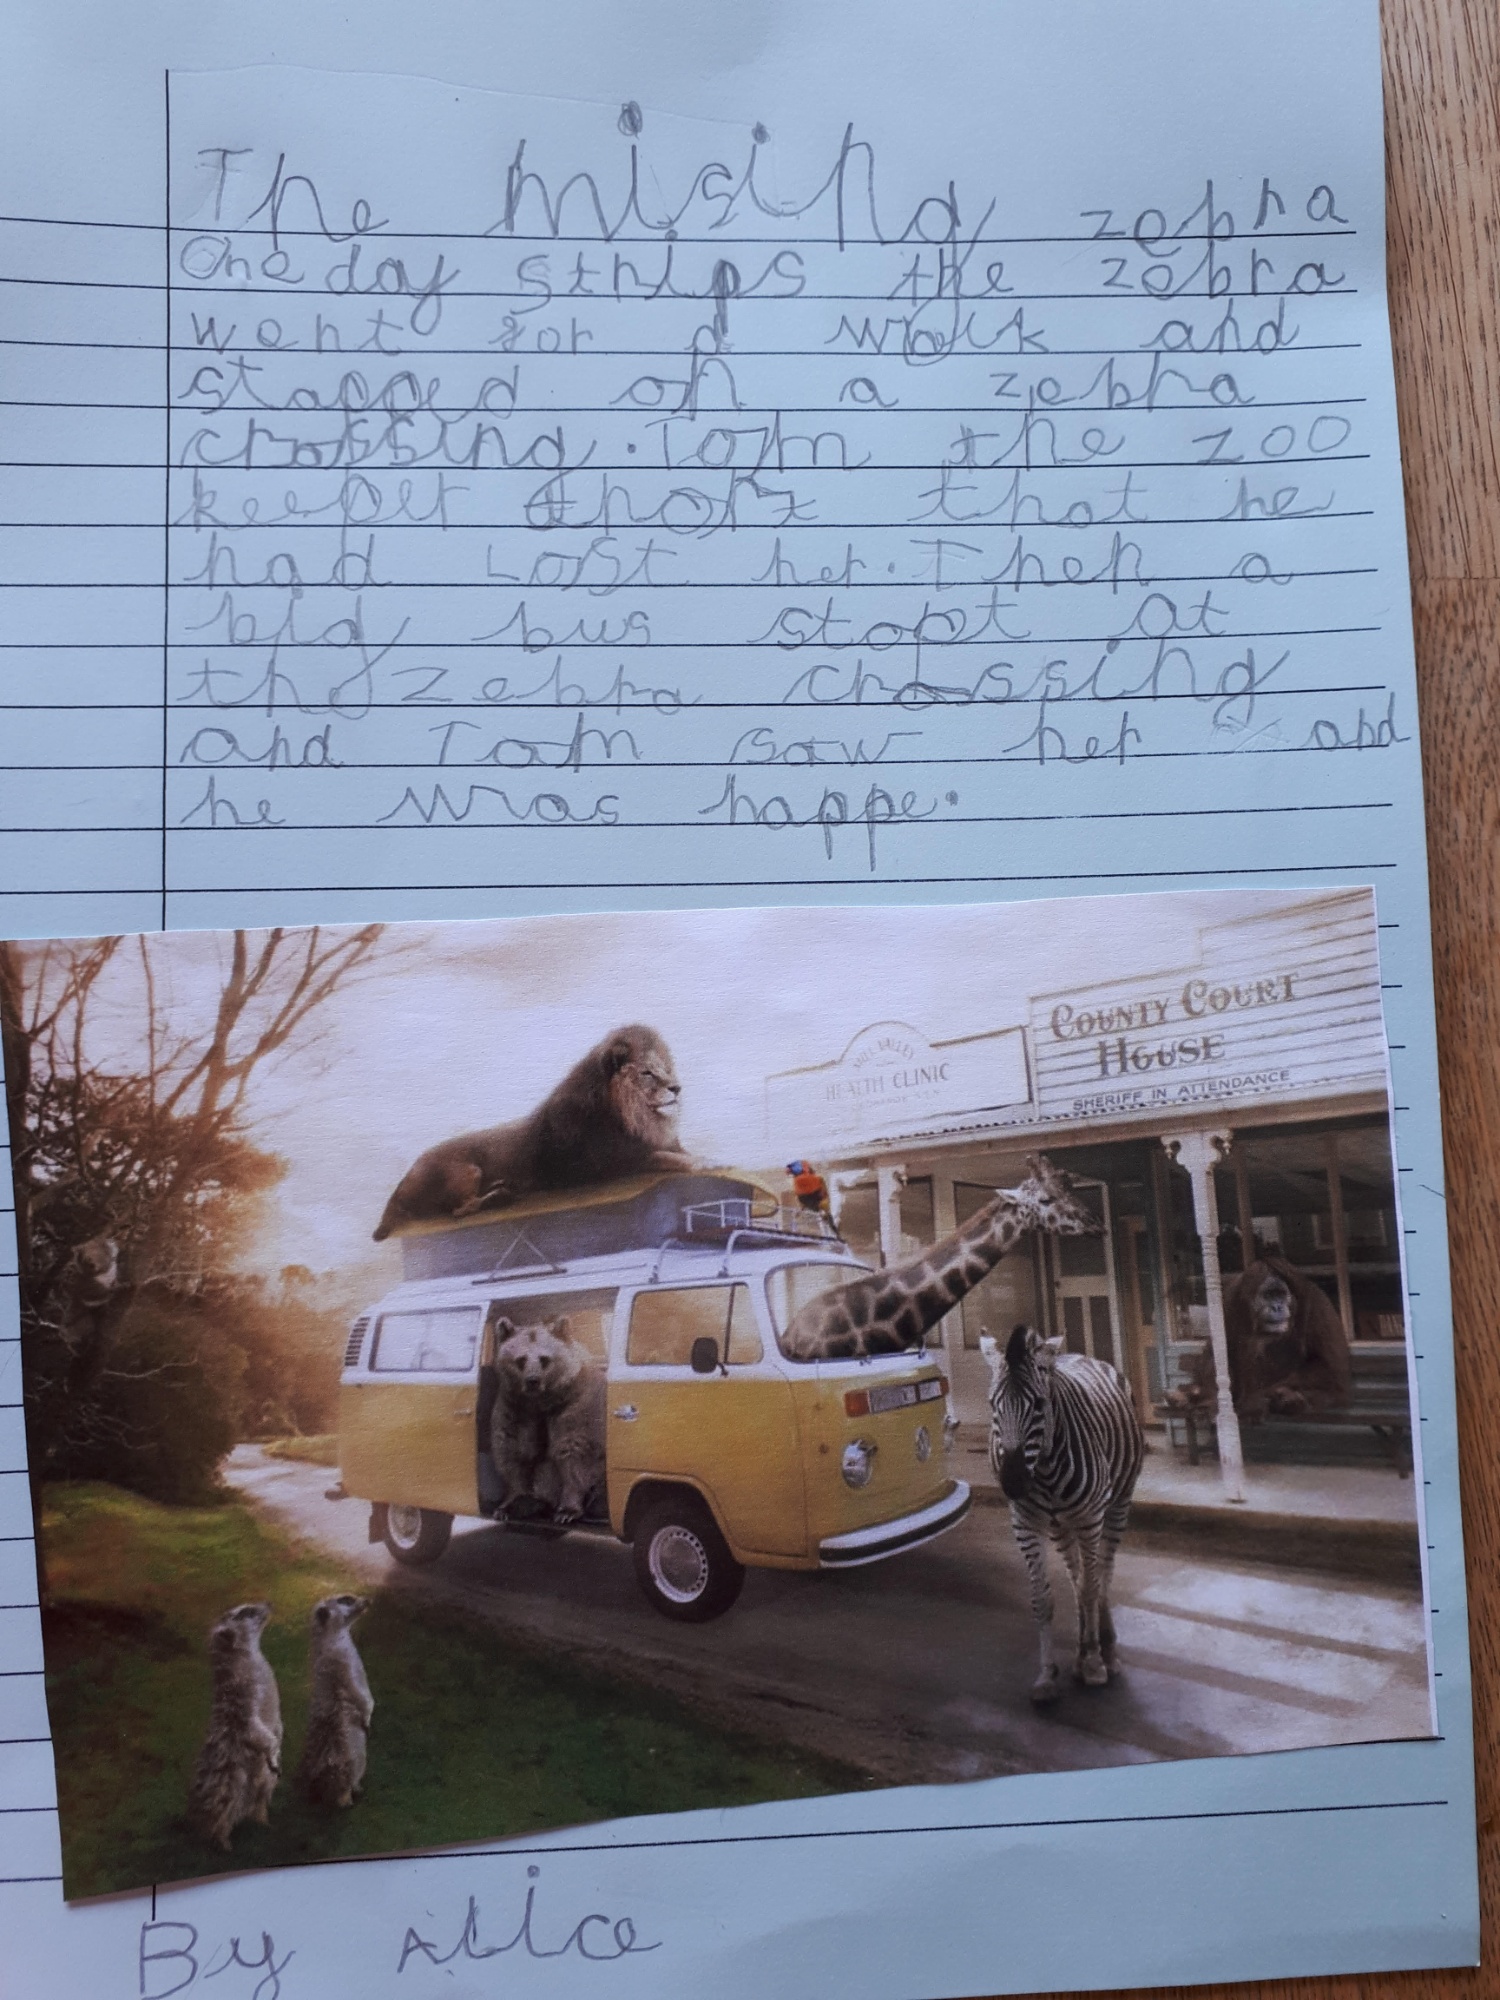 The mising zebra
One day strips the zebra
went for a walk and
stopped on a zebra
crossing. Tom the zoo
keeper thort that he
had Lost her. Then a
big bus stopt at
the zebra crossing
and Tom saw her and
he was happe.
COUNTY COURT
HOUSE
SHERIFF IN ATTENDANCE
HEALTH CLINIC
By Alice